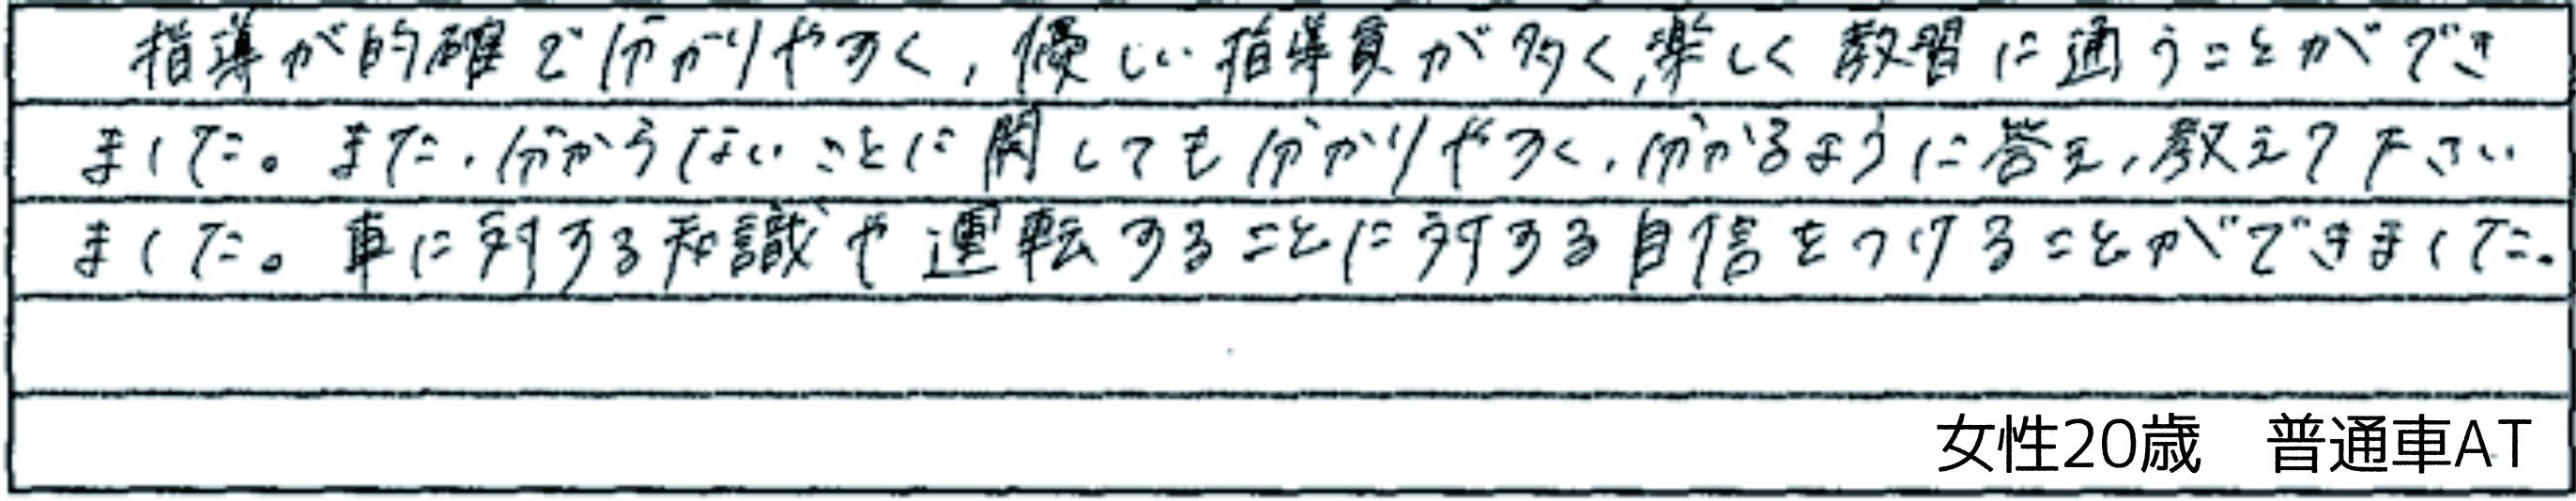 指導が的確で分かりやすく,優しい指導員が多く,楽しく教習に通うことができ
ました。また,分からないことに関しても分かりやすく,分かるように答え,教えて下さい
ました。車に対する知識や運転することに対する自信をつけることができました。
女性20歳　普通車AT